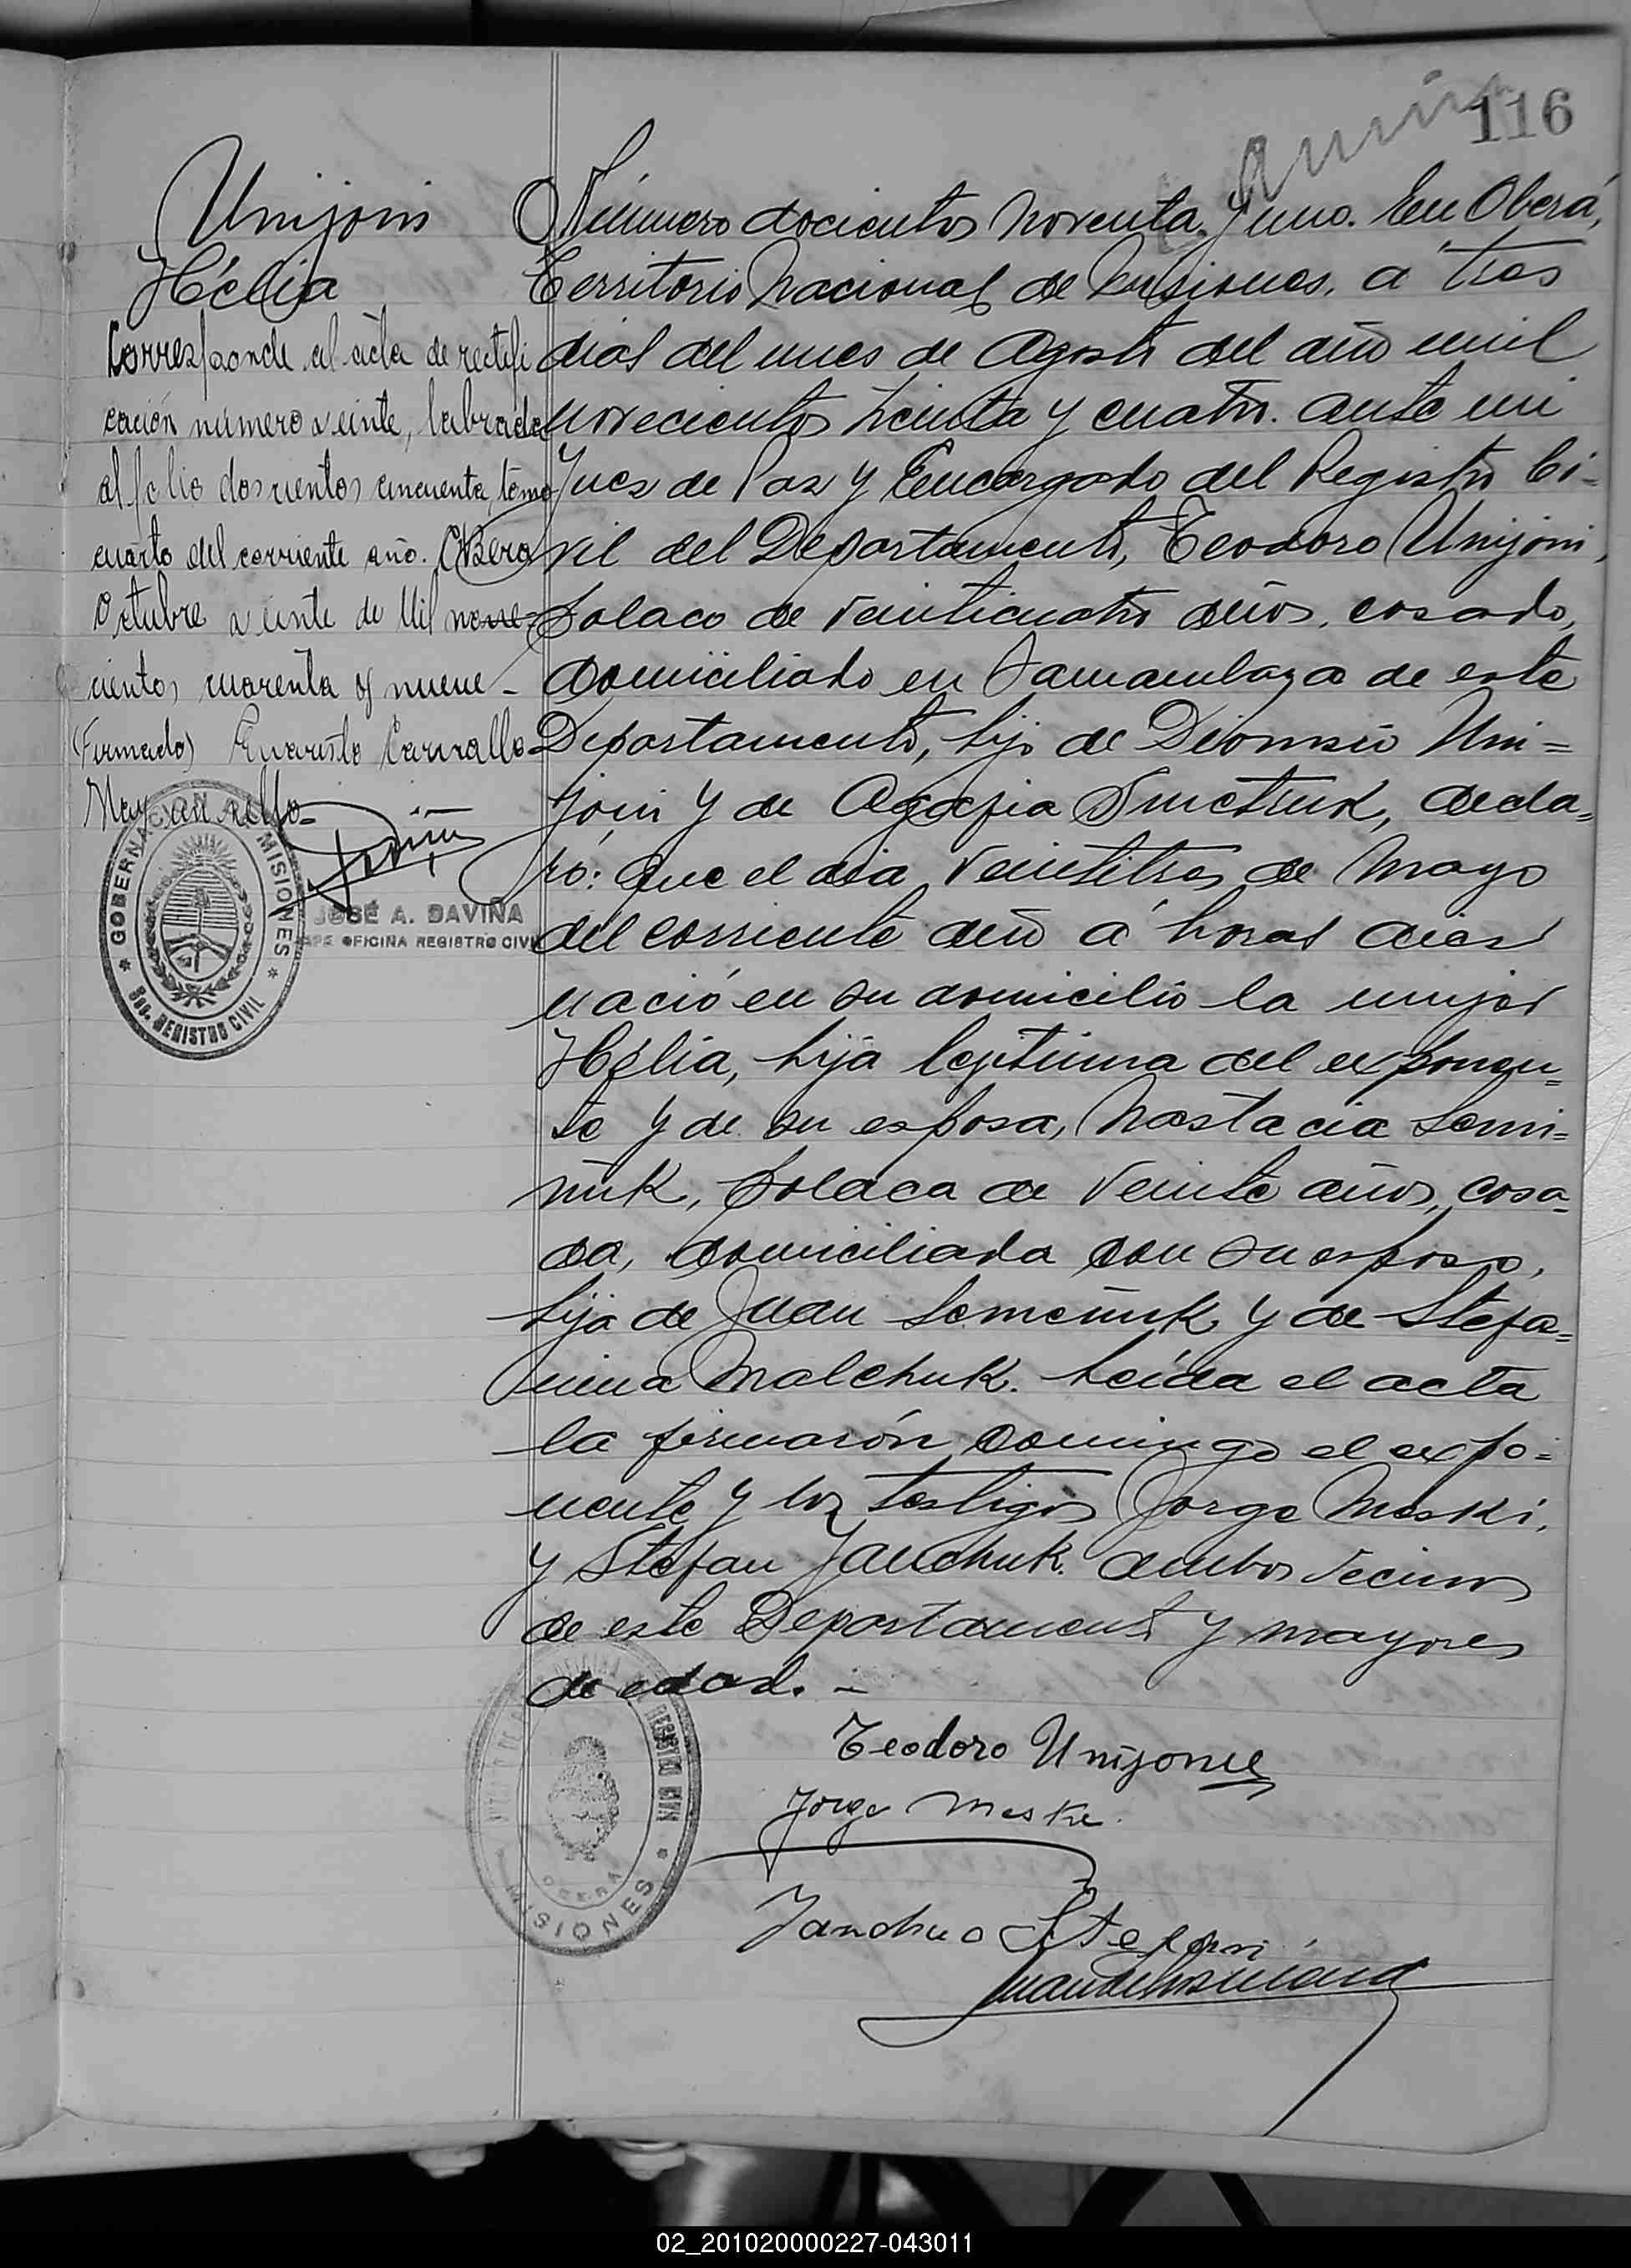 116
Unijoni
Hélia
Corresponde al acta de rectifi
cación número veinte, labrada
al folio doscientos cincuenta, tomo
cuarto del corriente año. Oberá
Octubre veinte de Mil nove-
cientos cuarenta y nueve -
(Firmado) Evaristo Carvallo-
Hay un sello-
GOBERNACION MISIONES
Sec. REGISTRO CIVIL
JOSÉ A. DAVIÑA
JEFE OFICINA REGISTRO CIVIL
Número docientos noventa y uno. En Oberá,
Territorio Nacional de Misiones, a tres
dias del mes de Agosto del año mil
novecientos treinta y cuatro. ante mi
Juez de Paz y Encargado del Registro Ci=
vil del Departamento, Teodoro Unijoni,
polaco de veinticuatro años, casado,
domiciliado en Samambaya de este
Departamento, hijo de Dionisio Uni=
joni y de Agafia Smetruk, decla=
ró: Que el dia veintitres de Mayo
del corriente año á horas diez
nació en su domicilio la mujer
Hélia, hija legitima del exponen=
te y de su esposa, Nastacia Semi=
niuk, polaca de veinte años, casa=
da, domiciliada con su esposo,
hija de Juan Semeniuk y de Stefa=
nina Malchuk. Leída el acta
la firmarón conmigo el expo=
nente y los testigos Jorge Meski,
y Stefan Janchuk. ambos vecinos
de este Departamento y mayores
de edad. -
REGISTRO CIVIL
OBERA
MISIONES
Teodoro Unijonie
Jorge Meske.
Janchuc Stefan